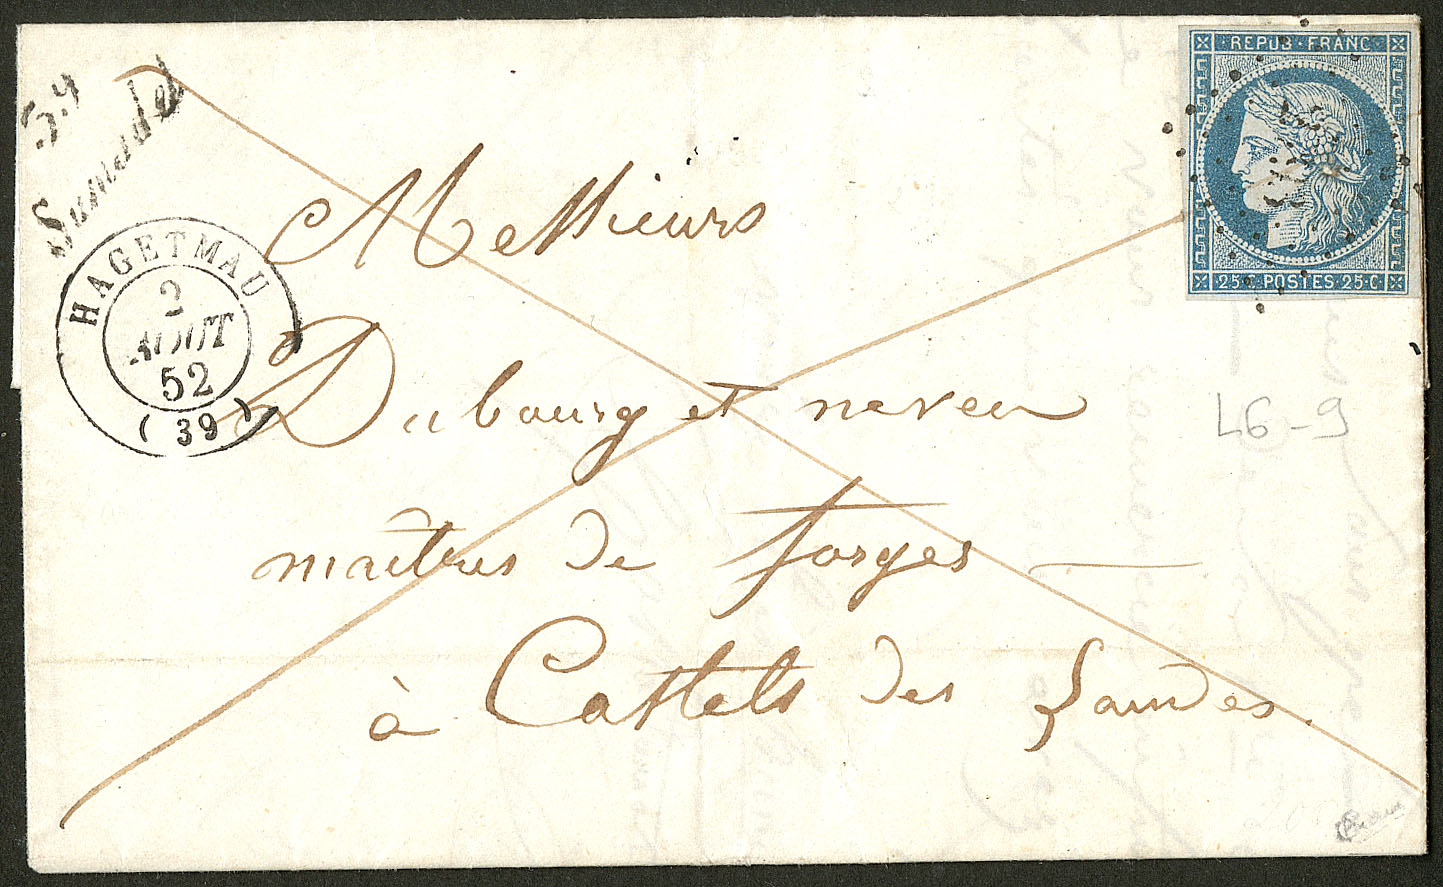 39
Samadet
HAGETMAU
2
AOUT
52
(39)
REPUB·FRANC
25·C·POSTES·25·C
Messieurs
Dubourg et neveu
maîtres de forges
à Castets des Landes.
L6-9